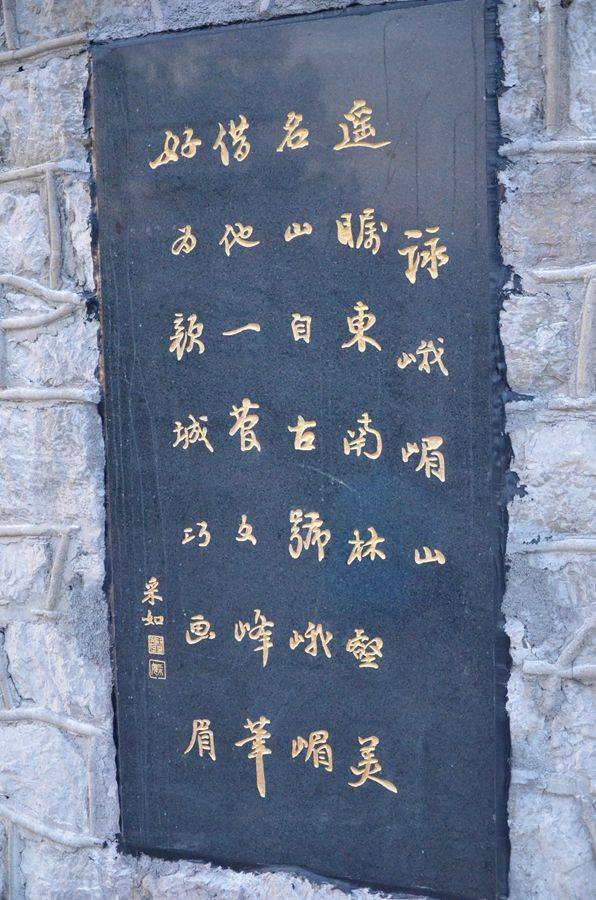 詠峨嵋山
遥瞩東南林壑美
名山自古號峨嵋
借他一管文峰筆
好为城巧画眉
采如